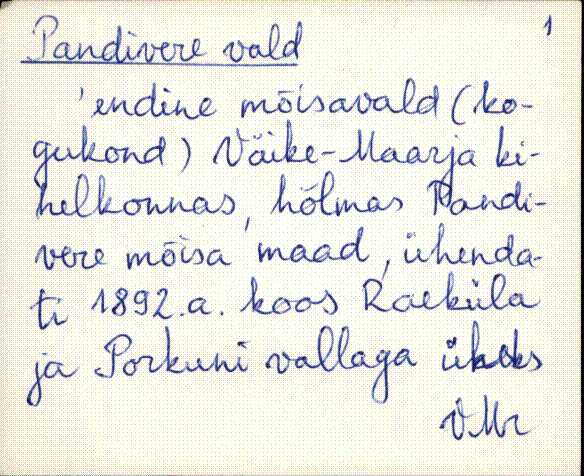 1
Pandivere vald
'endine mõisavald (ko-
gukond) Väike-Maarja ki-
helkonnas, hõlmas Pandi-
vere mõisa maad, ühenda-
ti 1892.a. koos Raeküla
ja Porkuni vallaga üheks
VMr